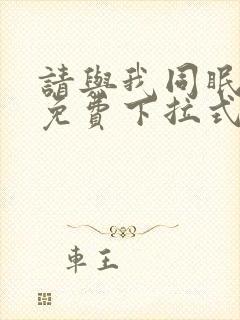 請與我同眠
免費下拉式
車王